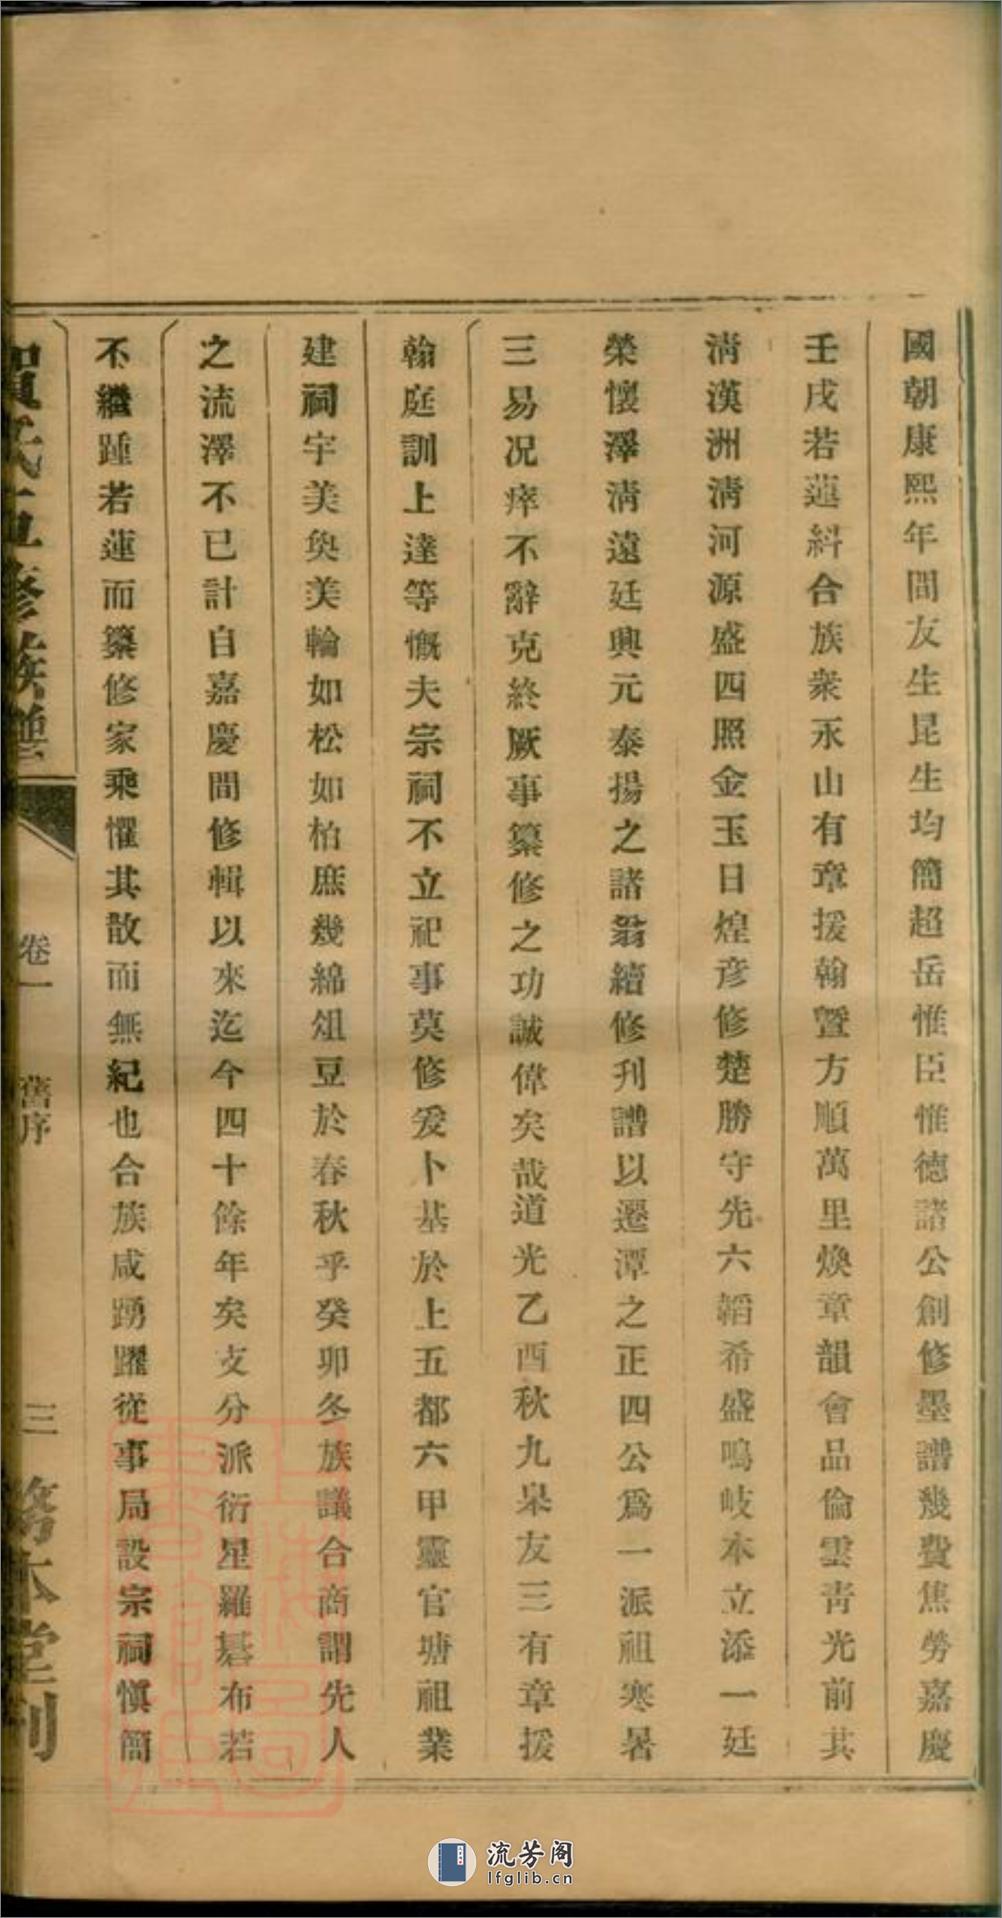 國朝康熙年間友生昆生均簡超岳惟臣惟德諸公創修墨譜幾費焦勞嘉慶
壬戌若蓮糾合族衆永山有章援翰曁方順萬里煥章韻會品倫雲靑光前其
淸漢洲淸河源盛四照金玉日煌彦修楚勝守先六韜希盛鳴岐本立添一廷
榮懷澤淸遠廷興元泰揚之諸翁續修刋譜以遷潭之正四公爲一派祖寒暑
三易況瘁不辭克終厥事纂修之功誠偉矣哉道光乙酉秋九臯友三有章援
翰庭訓上達等慨夫宗祠不立祀事莫修爰卜基於上五都六甲靈官塘祖業
建祠宇美奐美輪如松如柏庶幾綿俎豆於春秋乎癸卯冬族議合商謂先人
之流澤不已計自嘉慶間修輯以來迄今四十餘年矣支分派衍星羅碁布若
不繼踵若蓮而纂修家乘懼其散而無紀也合族咸踴躍從事局設宗祠愼簡
賀氏五修族譜
卷一
舊序
三
務本堂刋
流芳阁
lfglib.cn